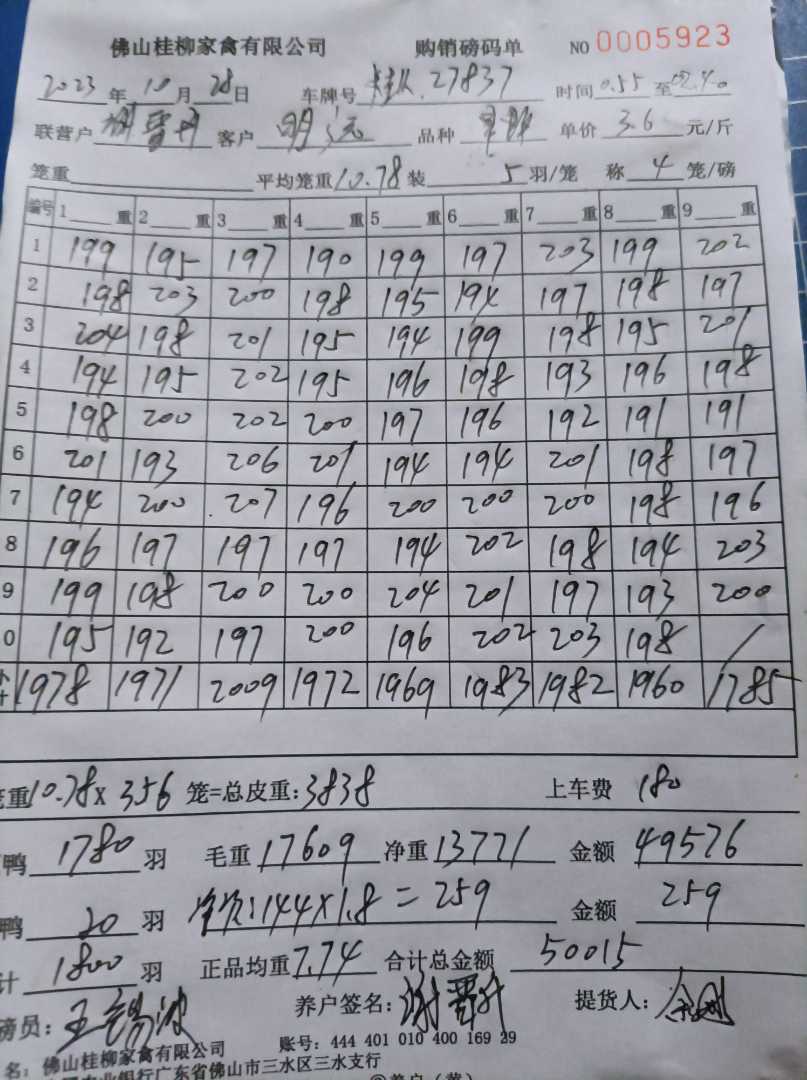 佛山桂柳家禽有限公司 购销磅码单 NO 0005923
2023 年 10 月 28 日 车牌号 27837 时间 0.55 至
联营户 谢晋升 客户 明远 品种 单价 3.6 元/斤
笼重 平均笼重 10.78 装 5 羽/笼 称 4 笼/磅
编号 1 重 2 重 3 重 4 重 5 重 6 重 7 重 8 重 9 重
1 199 195 197 190 199 197 203 199 202
2 198 203 200 198 195 194 197 198 197
3 204 198 201 195 194 199 198 195 201
4 194 195 202 195 196 198 193 196 198
5 198 200 202 200 197 196 192 191 191
6 201 193 206 201 194 194 201 198 197
7 194 200 207 196 200 200 200 198 196
8 196 197 197 197 194 202 198 194 203
9 199 198 200 200 204 201 197 193 200
0 195 192 197 200 196 202 203 198 /
1978 1971 2009 1972 1969 1983 1982 1960 1785
重 10.78 X 356 笼=总皮重: 3838 上车费 180
鸭 1780 羽 毛重 17609 净重 13771 金额 49576
鸭 20 羽 净次: 144 X 1.8 = 259 金额 259
计 1800 羽 正品均重 7.74 合计总金额 50015
磅员: 养户签名: 谢晋升 提货人:
名: 佛山桂柳家禽有限公司 账号: 444 401 010 400 169 29
农业银行广东省佛山市三水区三水支行